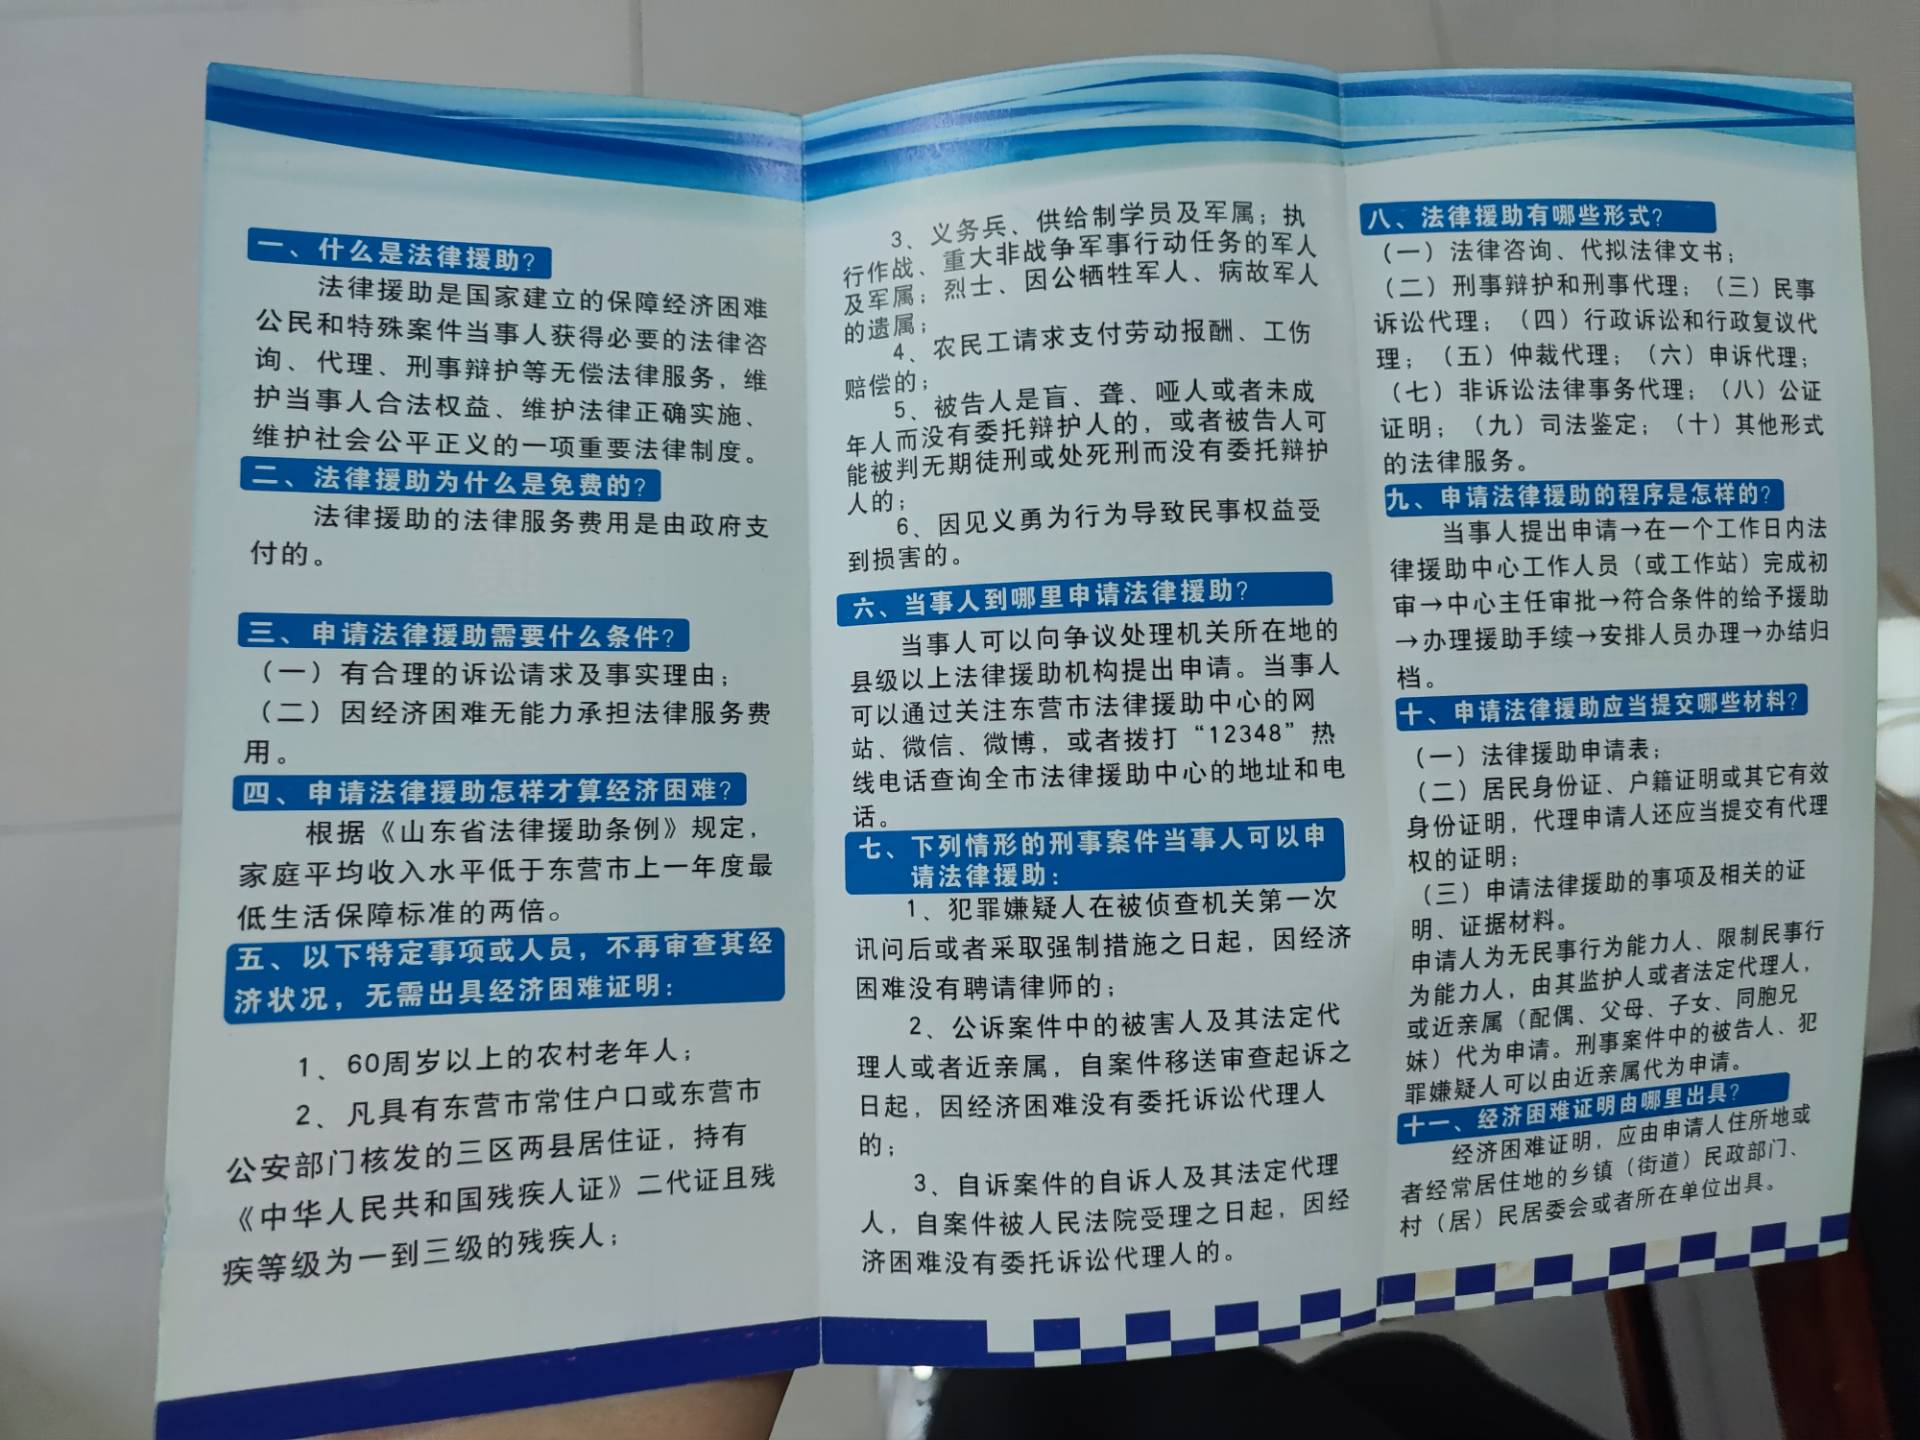 一、什么是法律援助?
法律援助是国家建立的保障经济困难
公民和特殊案件当事人获得必要的法律咨
询、代理、刑事辩护等无偿法律服务，维
护当事人合法权益、维护法律正确实施、
维护社会公平正义的一项重要法律制度。
二、法律援助为什么是免费的?
法律援助的法律服务费用是由政府支
付的。
三、申请法律援助需要什么条件?
（一）有合理的诉讼请求及事实理由；
（二）因经济困难无能力承担法律服务费
用。
四、申请法律援助怎样才算经济困难?
根据《山东省法律援助条例》规定，
家庭平均收入水平低于东营市上一年度最
低生活保障标准的两倍。
五、以下特定事项或人员，不再审查其经
济状况，无需出具经济困难证明：
1、60周岁以上的农村老年人；
2、凡具有东营市常住户口或东营市
公安部门核发的三区两县居住证，持有
《中华人民共和国残疾人证》二代证且残
疾等级为一到三级的残疾人；
3、义务兵、供给制学员及军属；执
行作战、重大非战争军事行动任务的军人
及军属；烈士、因公牺牲军人、病故军人
的遗属；
4、农民工请求支付劳动报酬、工伤
赔偿的；
5、被告人是盲、聋、哑人或者未成
年人而没有委托辩护人的，或者被告人可
能被判无期徒刑或处死刑而没有委托辩护
人的；
6、因见义勇为行为导致民事权益受
到损害的。
六、当事人到哪里申请法律援助?
当事人可以向争议处理机关所在地的
县级以上法律援助机构提出申请。当事人
可以通过关注东营市法律援助中心的网
站、微信、微博，或者拨打“12348”热
线电话查询全市法律援助中心的地址和电
话。
七、下列情形的刑事案件当事人可以申
请法律援助：
1、犯罪嫌疑人在被侦查机关第一次
讯问后或者采取强制措施之日起，因经济
困难没有聘请律师的；
2、公诉案件中的被害人及其法定代
理人或者近亲属，自案件移送审查起诉之
日起，因经济困难没有委托诉讼代理人
的；
3、自诉案件的自诉人及其法定代理
人，自案件被人民法院受理之日起，因经
济困难没有委托诉讼代理人的。
八、法律援助有哪些形式?
（一）法律咨询、代拟法律文书；
（二）刑事辩护和刑事代理；（三）民事
诉讼代理；（四）行政诉讼和行政复议代
理；（五）仲裁代理；（六）申诉代理；
（七）非诉讼法律事务代理；（八）公证
证明；（九）司法鉴定；（十）其他形式
的法律服务。
九、申请法律援助的程序是怎样的?
当事人提出申请→在一个工作日内法
律援助中心工作人员（或工作站）完成初
审→中心主任审批→符合条件的给予援助
→办理援助手续→安排人员办理→办结归
档。
十、申请法律援助应当提交哪些材料?
（一）法律援助申请表；
（二）居民身份证、户籍证明或其它有效
身份证明，代理申请人还应当提交有代理
权的证明；
（三）申请法律援助的事项及相关的证
明、证据材料。
申请人为无民事行为能力人、限制民事行
为能力人，由其监护人或者法定代理人，
或近亲属（配偶、父母、子女、同胞兄
妹）代为申请。刑事案件中的被告人、犯
罪嫌疑人可以由近亲属代为申请。
十一、经济困难证明由哪里出具?
经济困难证明，应由申请人住所地或
者经常居住地的乡镇（街道）民政部门、
村（居）民居委会或者所在单位出具。